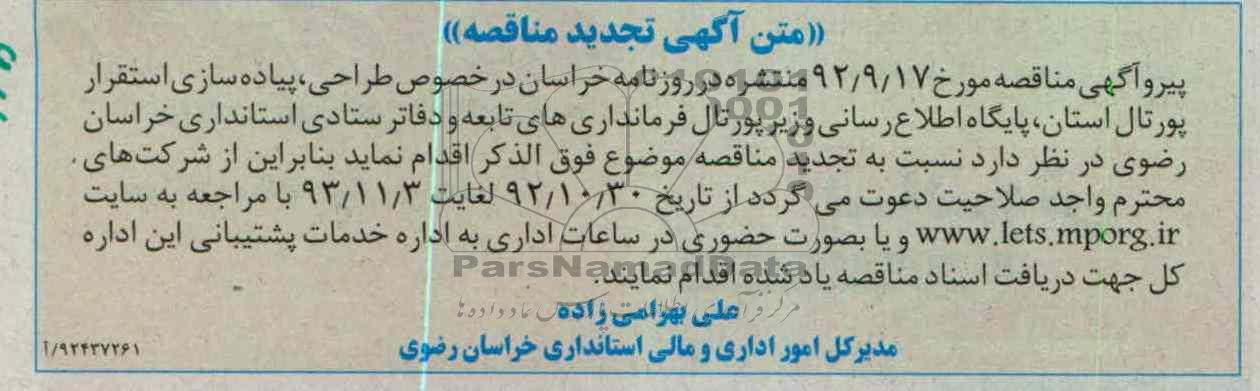 ((متن آگهی تجدید مناقصه))
پیرو آگهی مناقصه مورخ ۹۲/۹/۱۷ منتشره در روزنامه خراسان در خصوص طراحی، پیاده سازی استقرار
پورتال استان، پایگاه اطلاع رسانی و زیر پورتال فرمانداری های تابعه و دفاتر ستادی استانداری خراسان
رضوی در نظر دارد نسبت به تجدید مناقصه موضوع فوق الذکر اقدام نماید بنابراین از شرکت های
محترم واجد صلاحیت دعوت می گردد از تاریخ ۹۲/۱۰/۳۰ لغایت ۹۳/۱۱/۳ با مراجعه به سایت
www.lets.mporg.ir و یا بصورت حضوری در ساعات اداری به اداره خدمات پشتیبانی این اداره
کل جهت دریافت اسناد مناقصه یاد شده اقدام نمایند.
ParsNamadData
علی بهرامی زاده
مدیرکل امور اداری و مالی استانداری خراسان رضوی
۹۲۴۳۷۲۶۱/آ